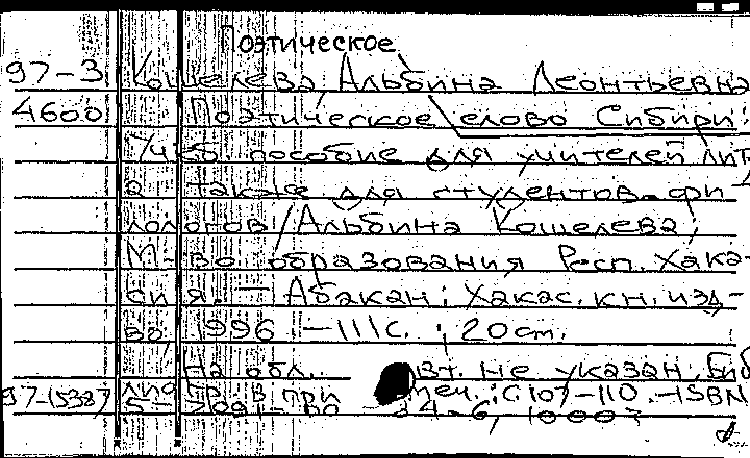 Поэтическое
97-3 Кошелева, Альбина Леонтьевна
4600 Поэтическое слово Сибири:
Учеб. пособие для учителей лит.
а также для студентов-фи-
лологов / Альбина Кошелева;
М-во образования Респ. Хака-
сия. - Абакан: Хакас. кн. изд-
во, 1996 - 111 с. ; 20 cm.
На обл. авт. не указан. Биб
97-15387 лиогр. в примеч.: с. 107-110. - ISBN
5-7091-00 34-6, 1000 э